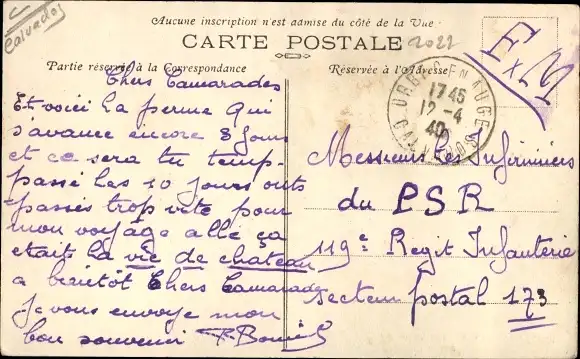 Calvados
Aucune inscription n'est admise du côté de la Vue
CARTE POSTALE
2022
Partie réservée à la Correspondance
Réservée à l'Adresse
Chers Camarades
Et voici la perme qui
s'avance encore 8 jours
et ce sera tu temp
passé les 10 jours onts
passés trop vite pour
mon voyage allé ça
etait la vie de chateau
a bientôt Chers Camarades
je vous envoye mon
bon souvenir
FM
EN AUGE
1745
12-4
40
CALVADOS
Messieurs les Infirmiers
du PSR
119e Regit Infanterie
secteur postal 173